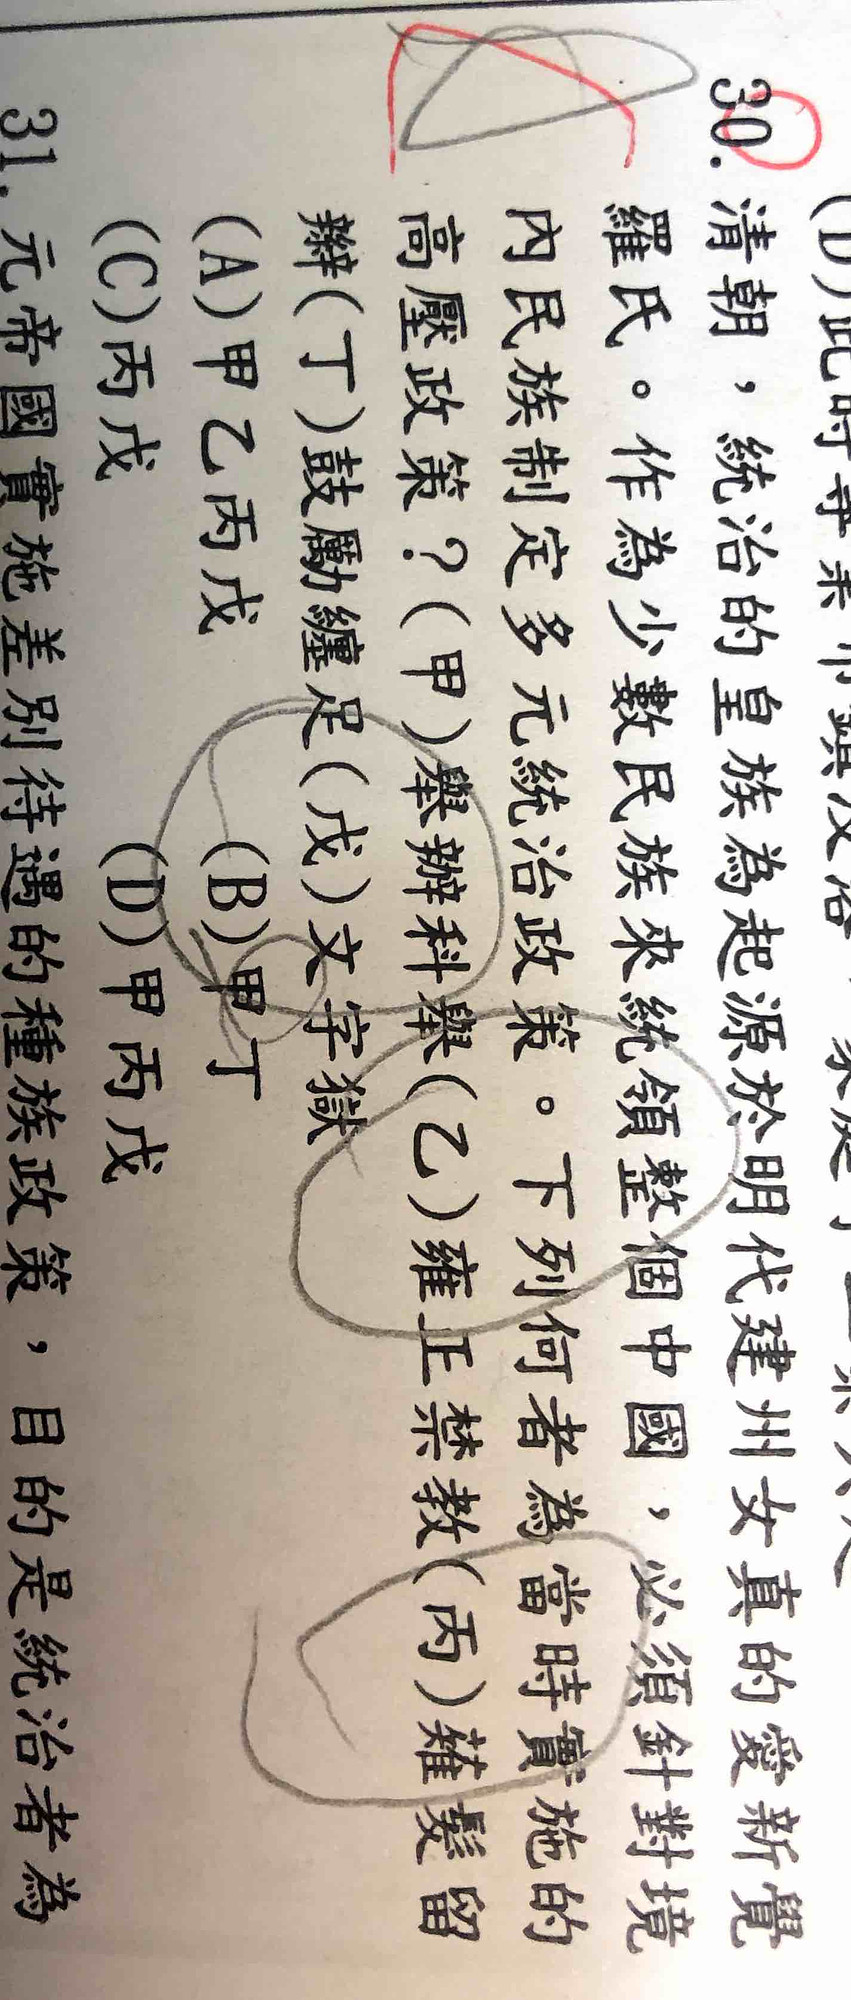 30.清朝，統治的皇族為起源於明代建州女真的愛新覺
羅氏。作為少數民族來統領整個中國，必須針對境
內民族制定多元統治政策。下列何者為當時實施的
高壓政策？(甲)舉辦科舉(乙)雍正禁教(丙)薙髮留
辮(丁)鼓勵纏足(戊)文字獄
(A)甲乙丙戊 (B)甲丁
(C)丙戊 (D)甲丙戊
31.元帝國實施差別待遇的種族政策，目的是統治者為